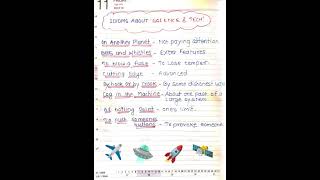 11
IDIOMS ABOUT SCIENCE & TECH!
On Another Planet - Not paying attention
Bells and Whistles - Extra Features
To Blow a Fuse - To lose temper
Cutting Edge - Advanced
By hook or by crook - By some dishonest way
Cog in the Machine - About one part of a
large system
At boiling point - one's limit
To Push someone's
buttons - To provoke someone